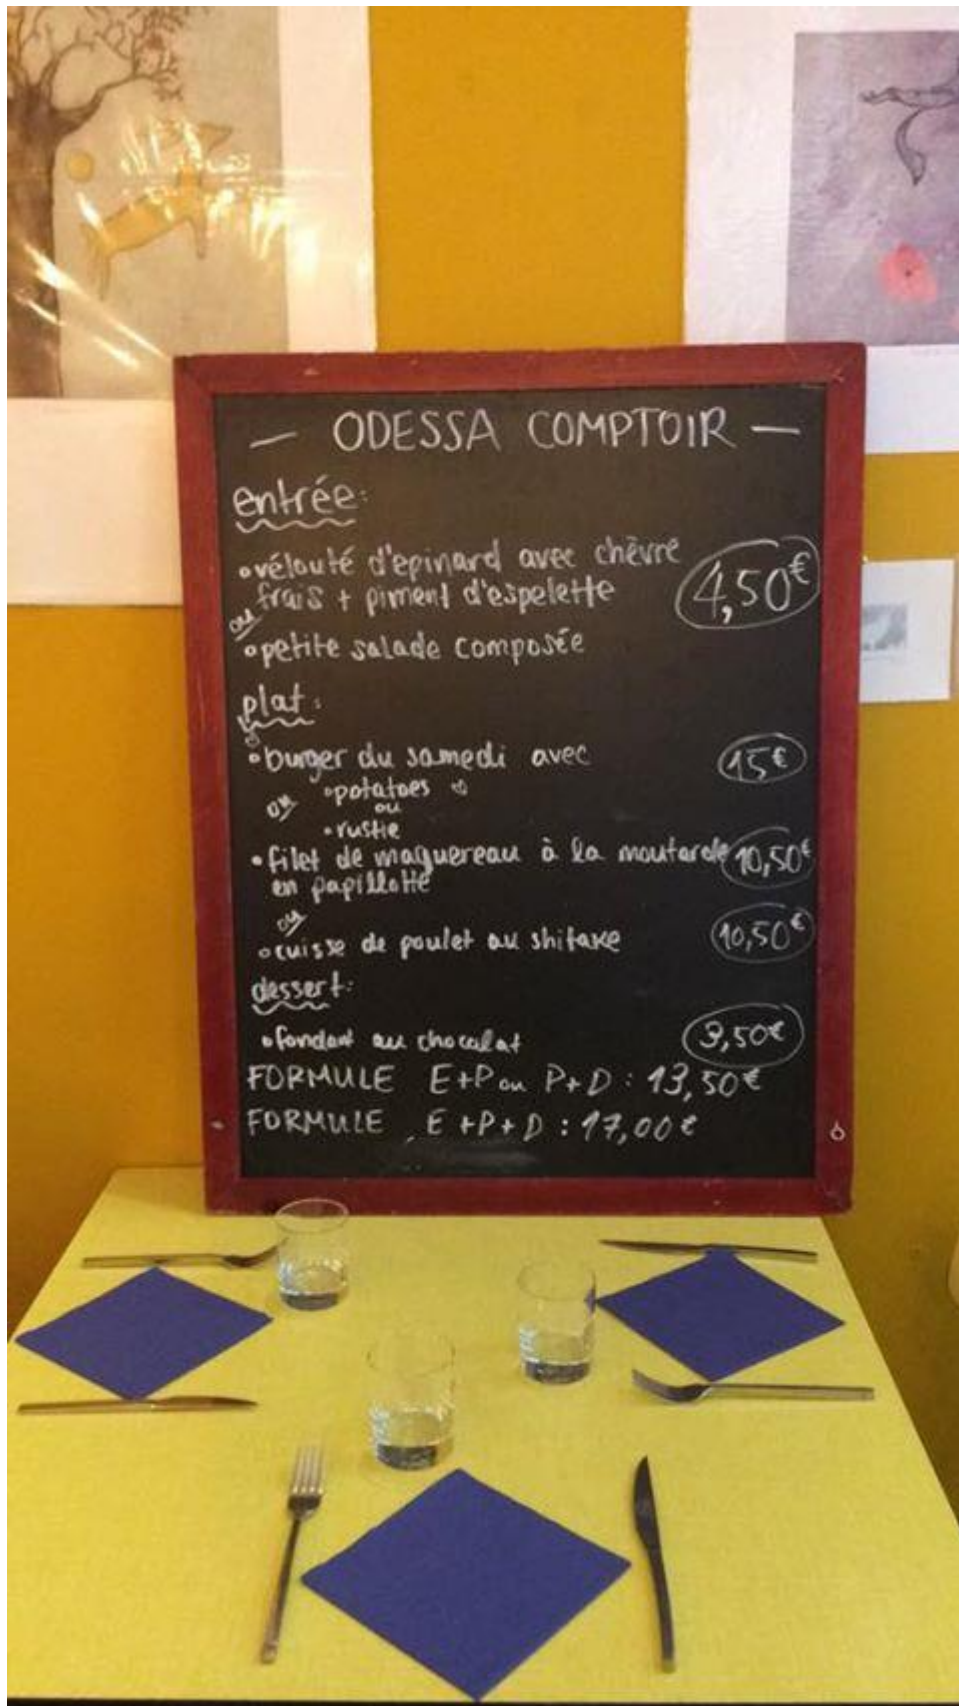 — ODESSA COMPTOIR —
entrée:
• vélouté d'epinard avec chèvre
frais + piment d'espelette
4,50€
ou
• petite salade composée
plat:
• burger du samedi avec 15€
• potatoes
ou
ou
• rustie
• filet de maquereau à la moutarde 10,50€
en papillotte
ou
• cuisse de poulet au shitake 10,50€
dessert:
• fondant au chocolat 3,50€
FORMULE E+P ou P+D : 13,50€
FORMULE E+P+D : 17,00€